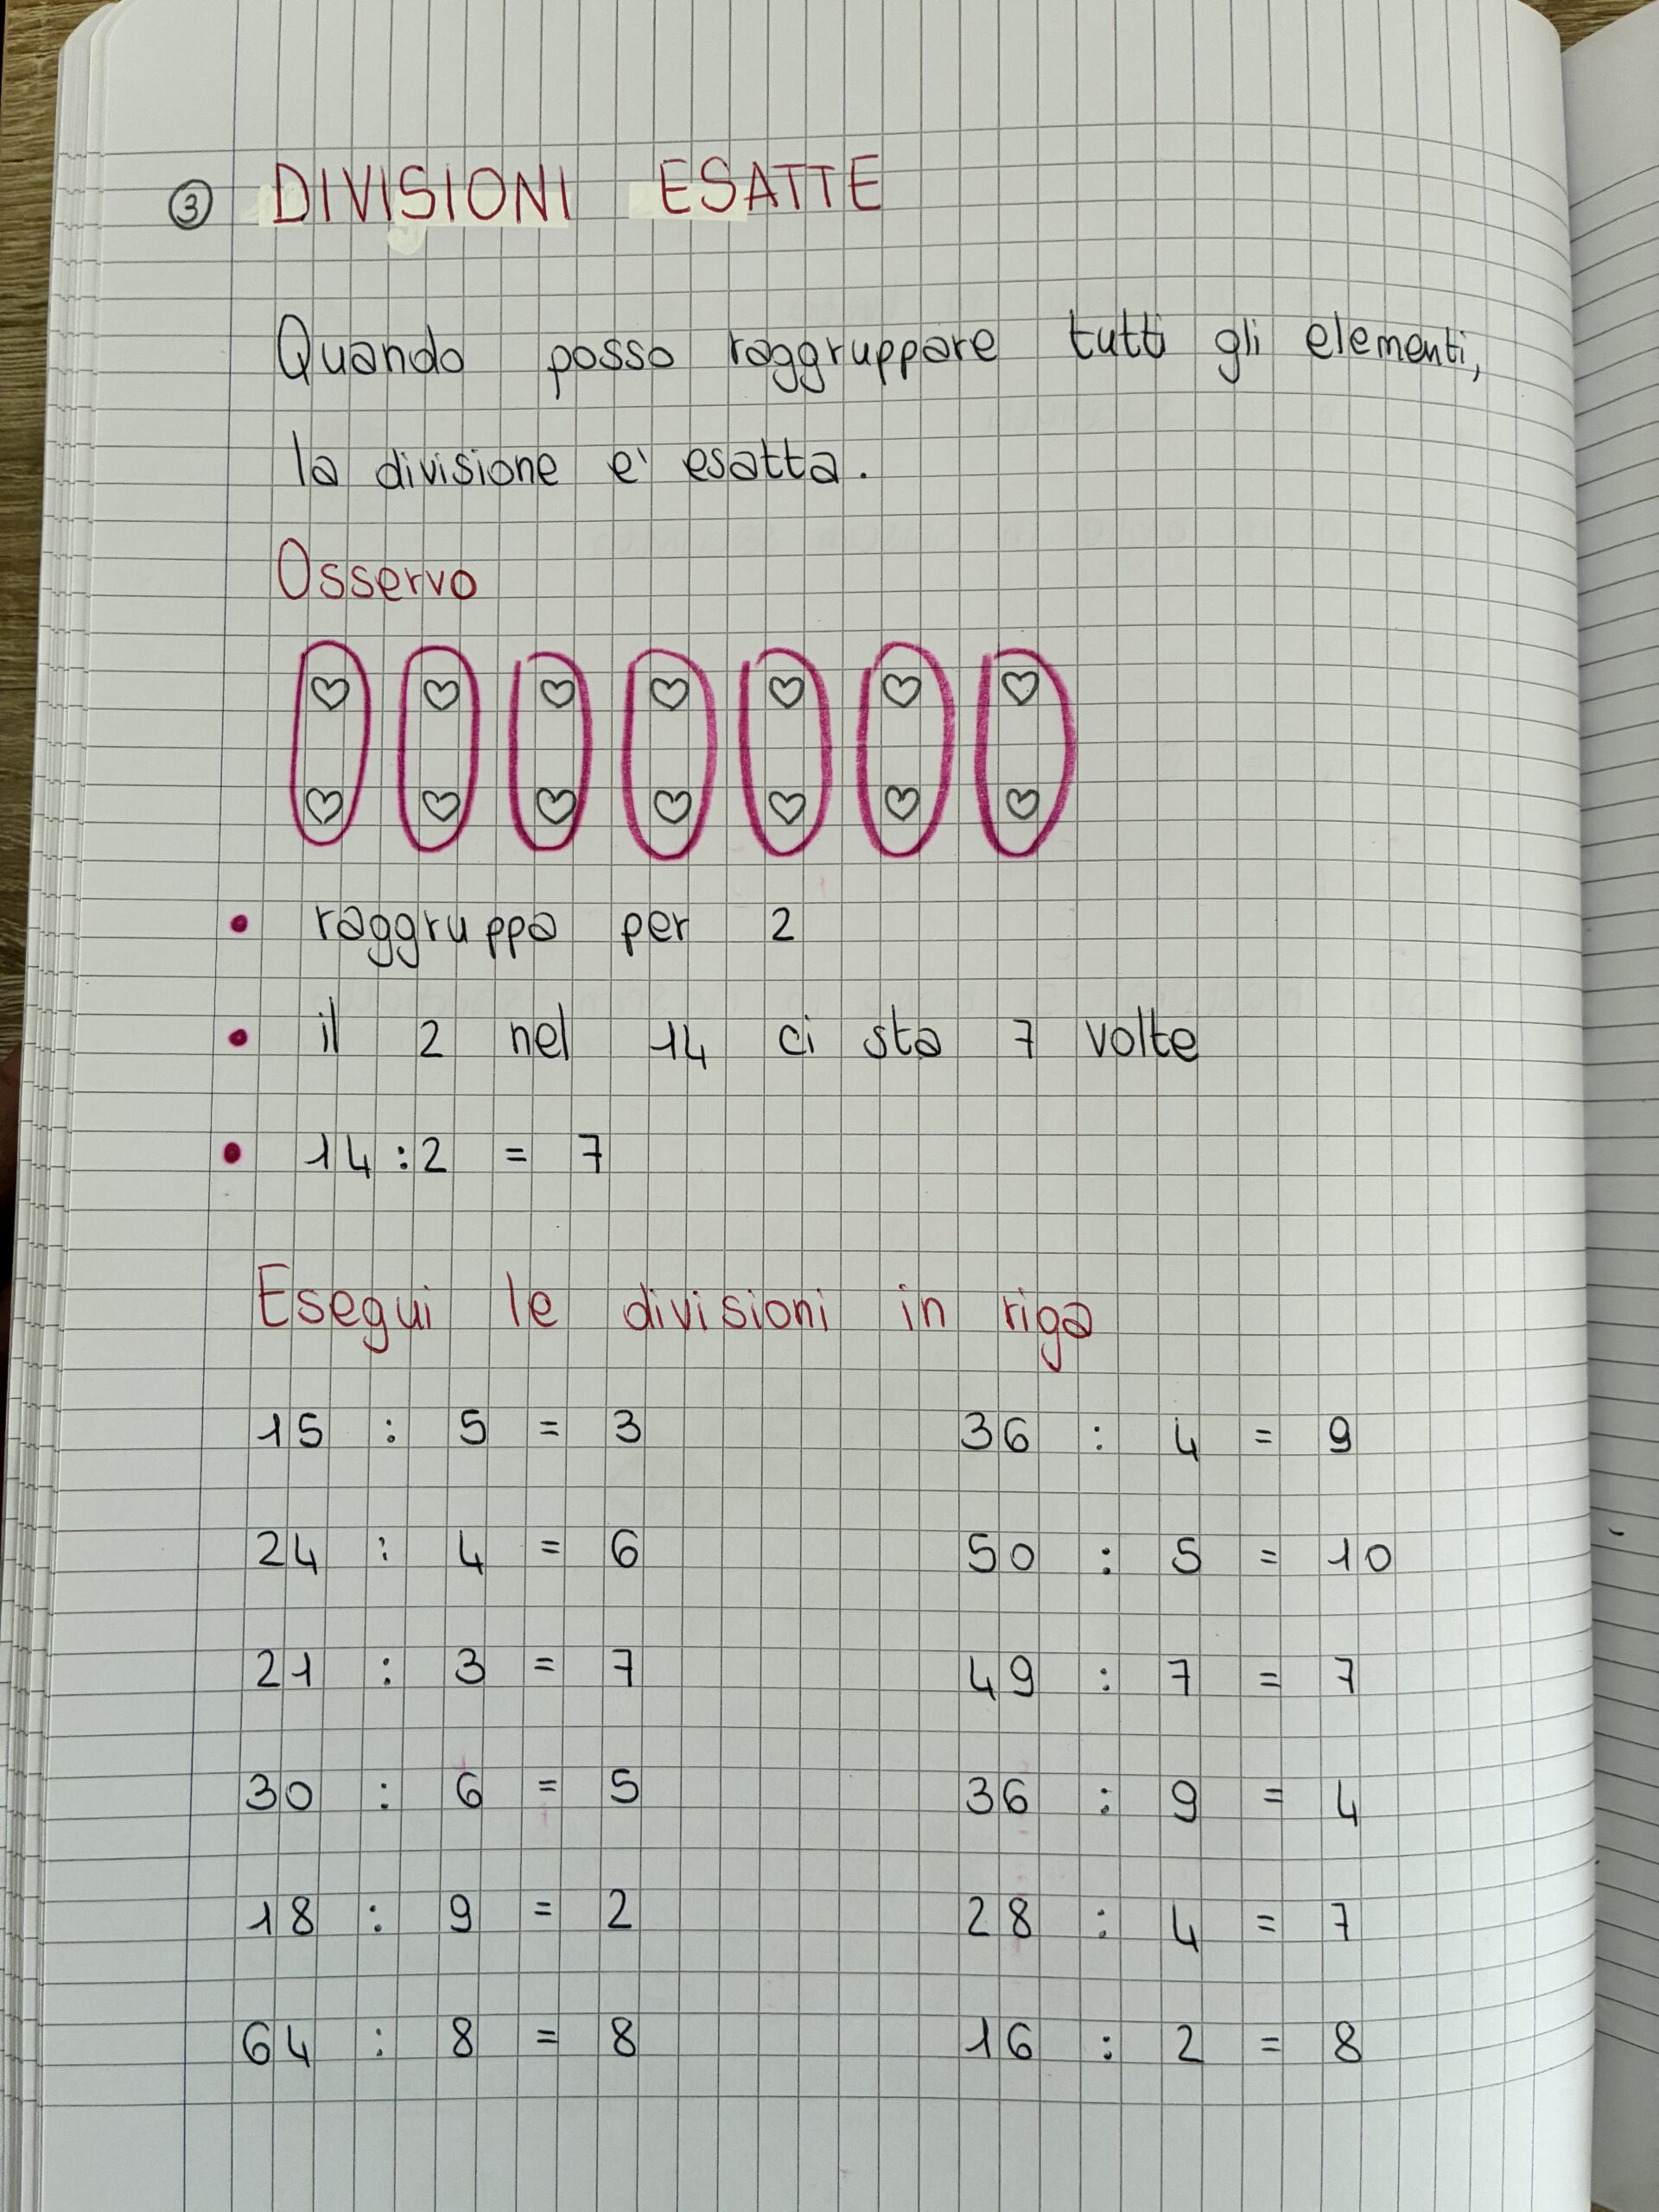 3 DIVISIONI ESATTE
Quando posso raggruppare tutti gli elementi,
la divisione e' esatta.
Osservo
• raggruppa per 2
• il 2 nel 14 ci sta 7 volte
• 14 : 2 = 7
Esegui le divisioni in riga
15 : 5 = 3 36 : 4 = 9
24 : 4 = 6 50 : 5 = 10
21 : 3 = 7 49 : 7 = 7
30 : 6 = 5 36 : 9 = 4
18 : 9 = 2 28 : 4 = 7
64 : 8 = 8 16 : 2 = 8